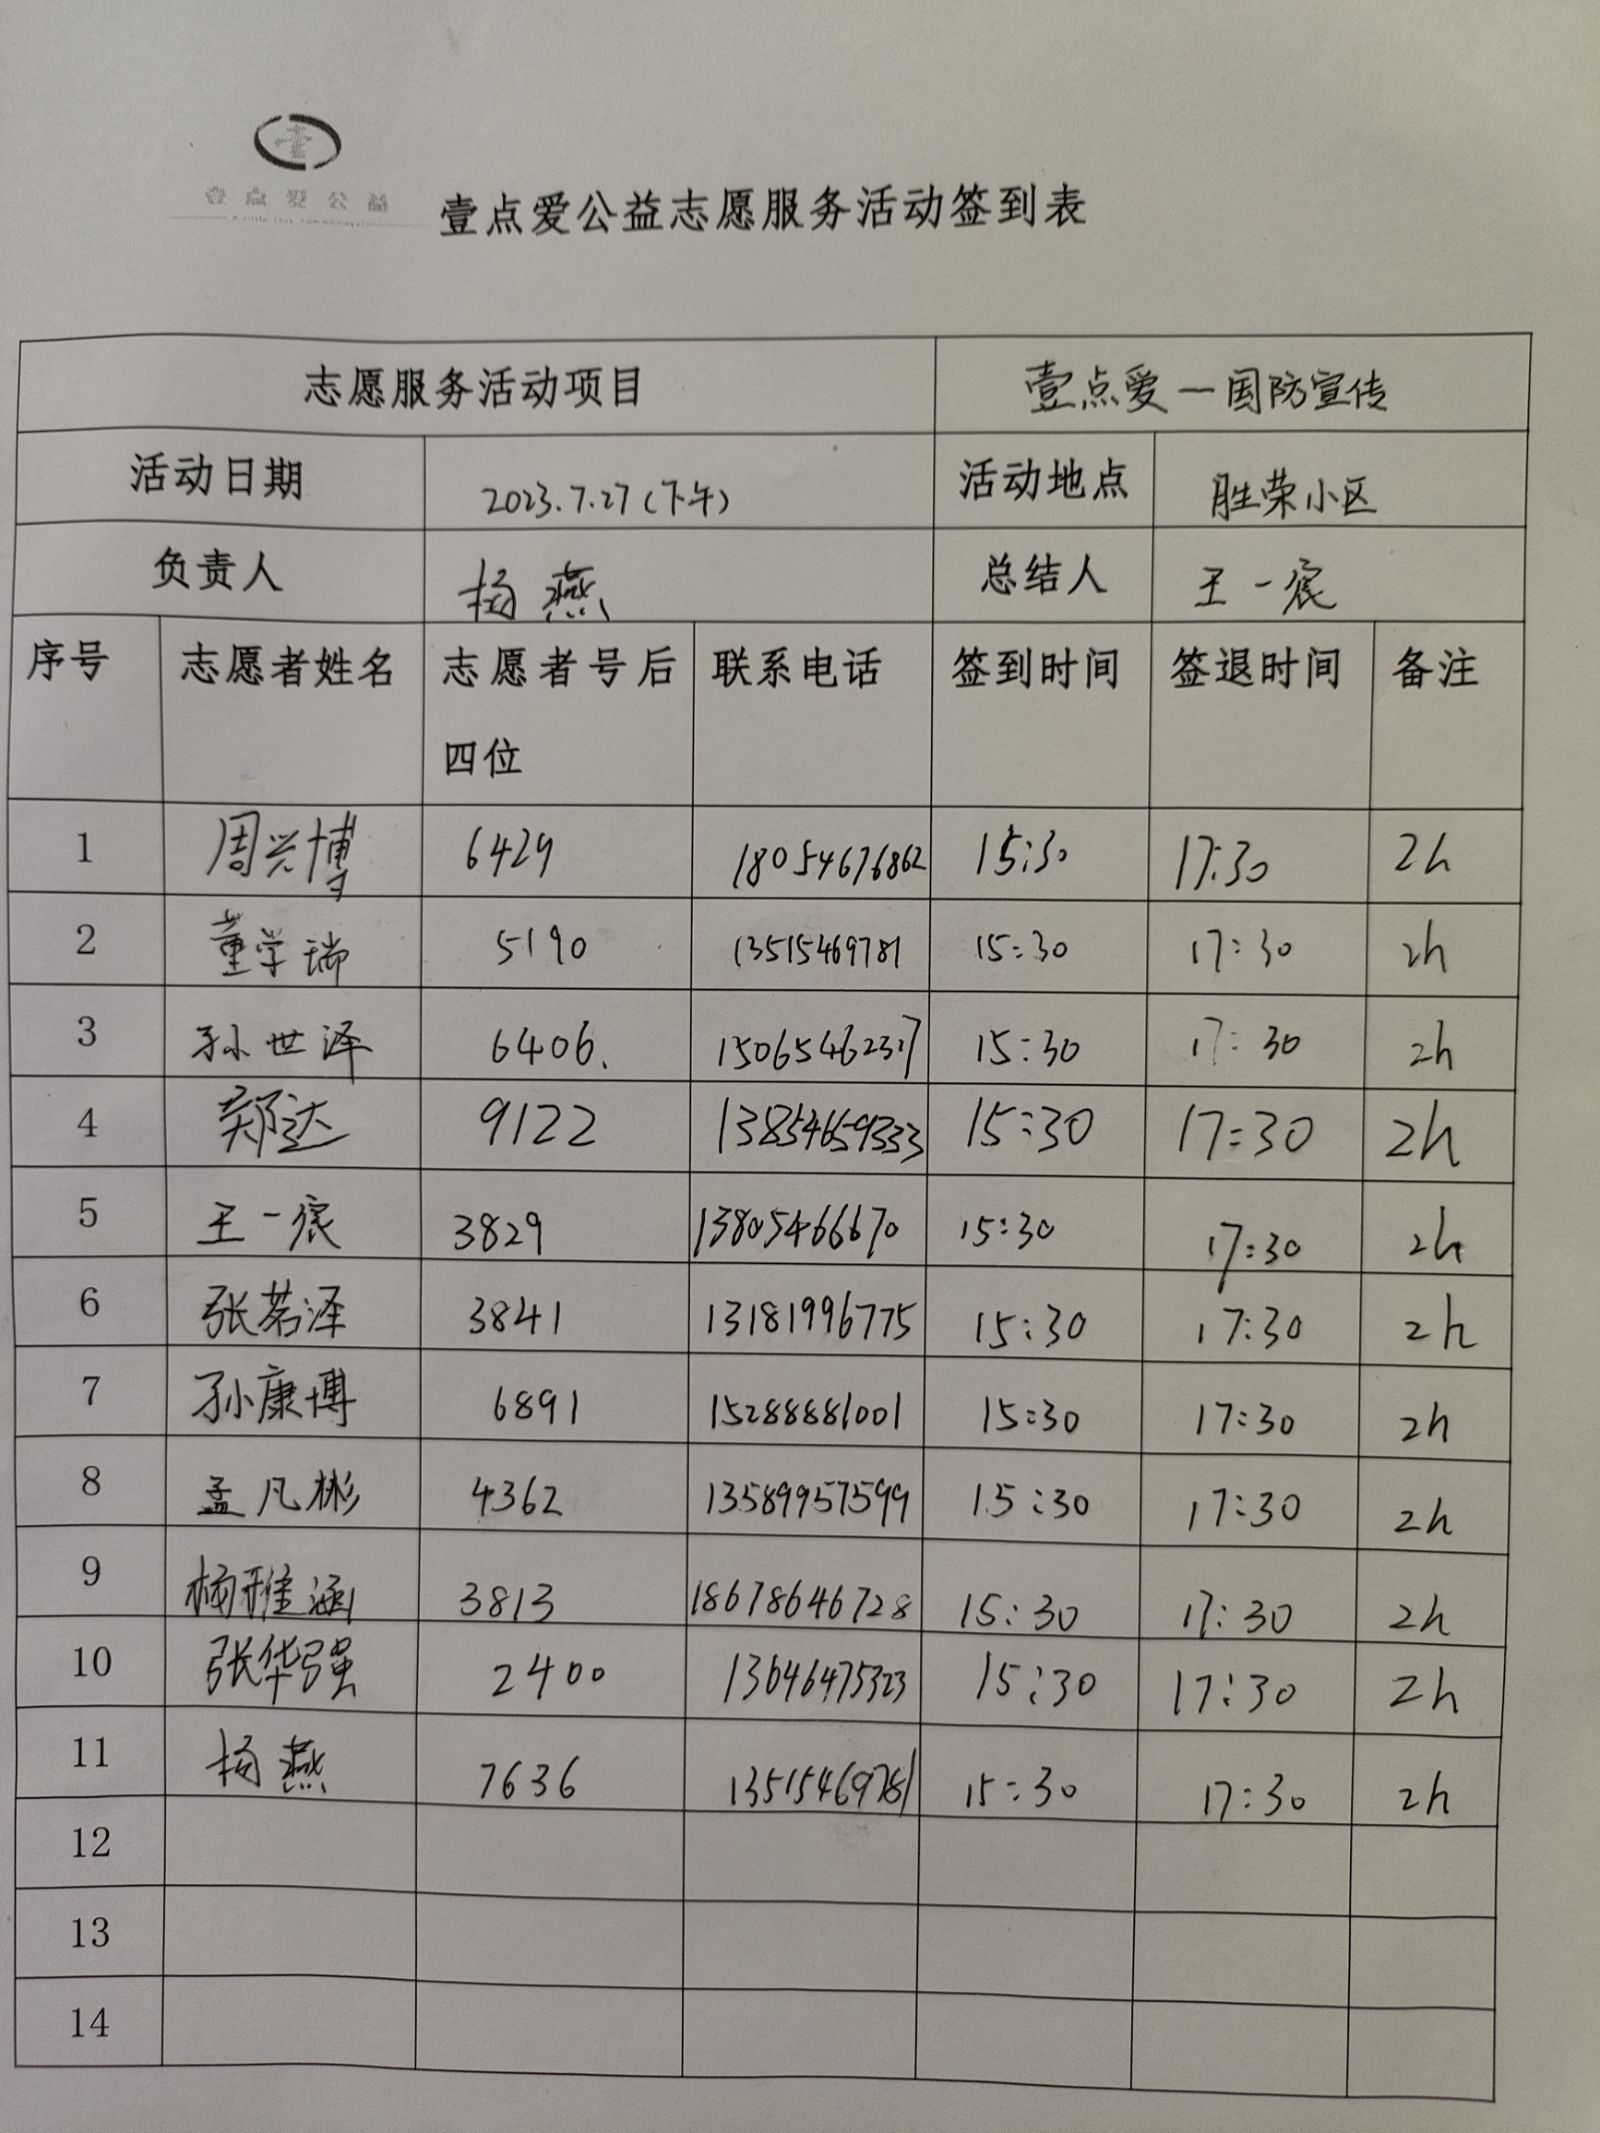 壹点爱公益
壹点爱公益志愿服务活动签到表
志愿服务活动项目 壹点爱一国防宣传
活动日期 2023.7.27(下午) 活动地点 胜荣小区
负责人 杨燕 总结人 王一宸
序号 志愿者姓名 志愿者号后 联系电话 签到时间 签退时间 备注
四位
1 周兴博 6429 18054676862 15:30 17:30 2h
2 董学瑞 5190 13515469781 15:30 17:30 2h
3 孙世泽 6406. 15:30 17:30 2h
4 郑达 9122 13854659333 15:30 17:30 2h
5 王一宸 3829 13805466670 15:30 17:30 2h
6 张若泽 3841 13181996775 15:30 17:30 2h
7 孙康博 6891 15288881001 15:30 17:30 2h
8 孟凡彬 4362 13589957599 15:30 17:30 2h
9 杨雅涵 3813 18678646728 15:30 17:30 2h
10 张华强 2400 13646475323 15:30 17:30 2h
11 杨燕 7636 13515469781 15:30 17:30 2h
12
13
14